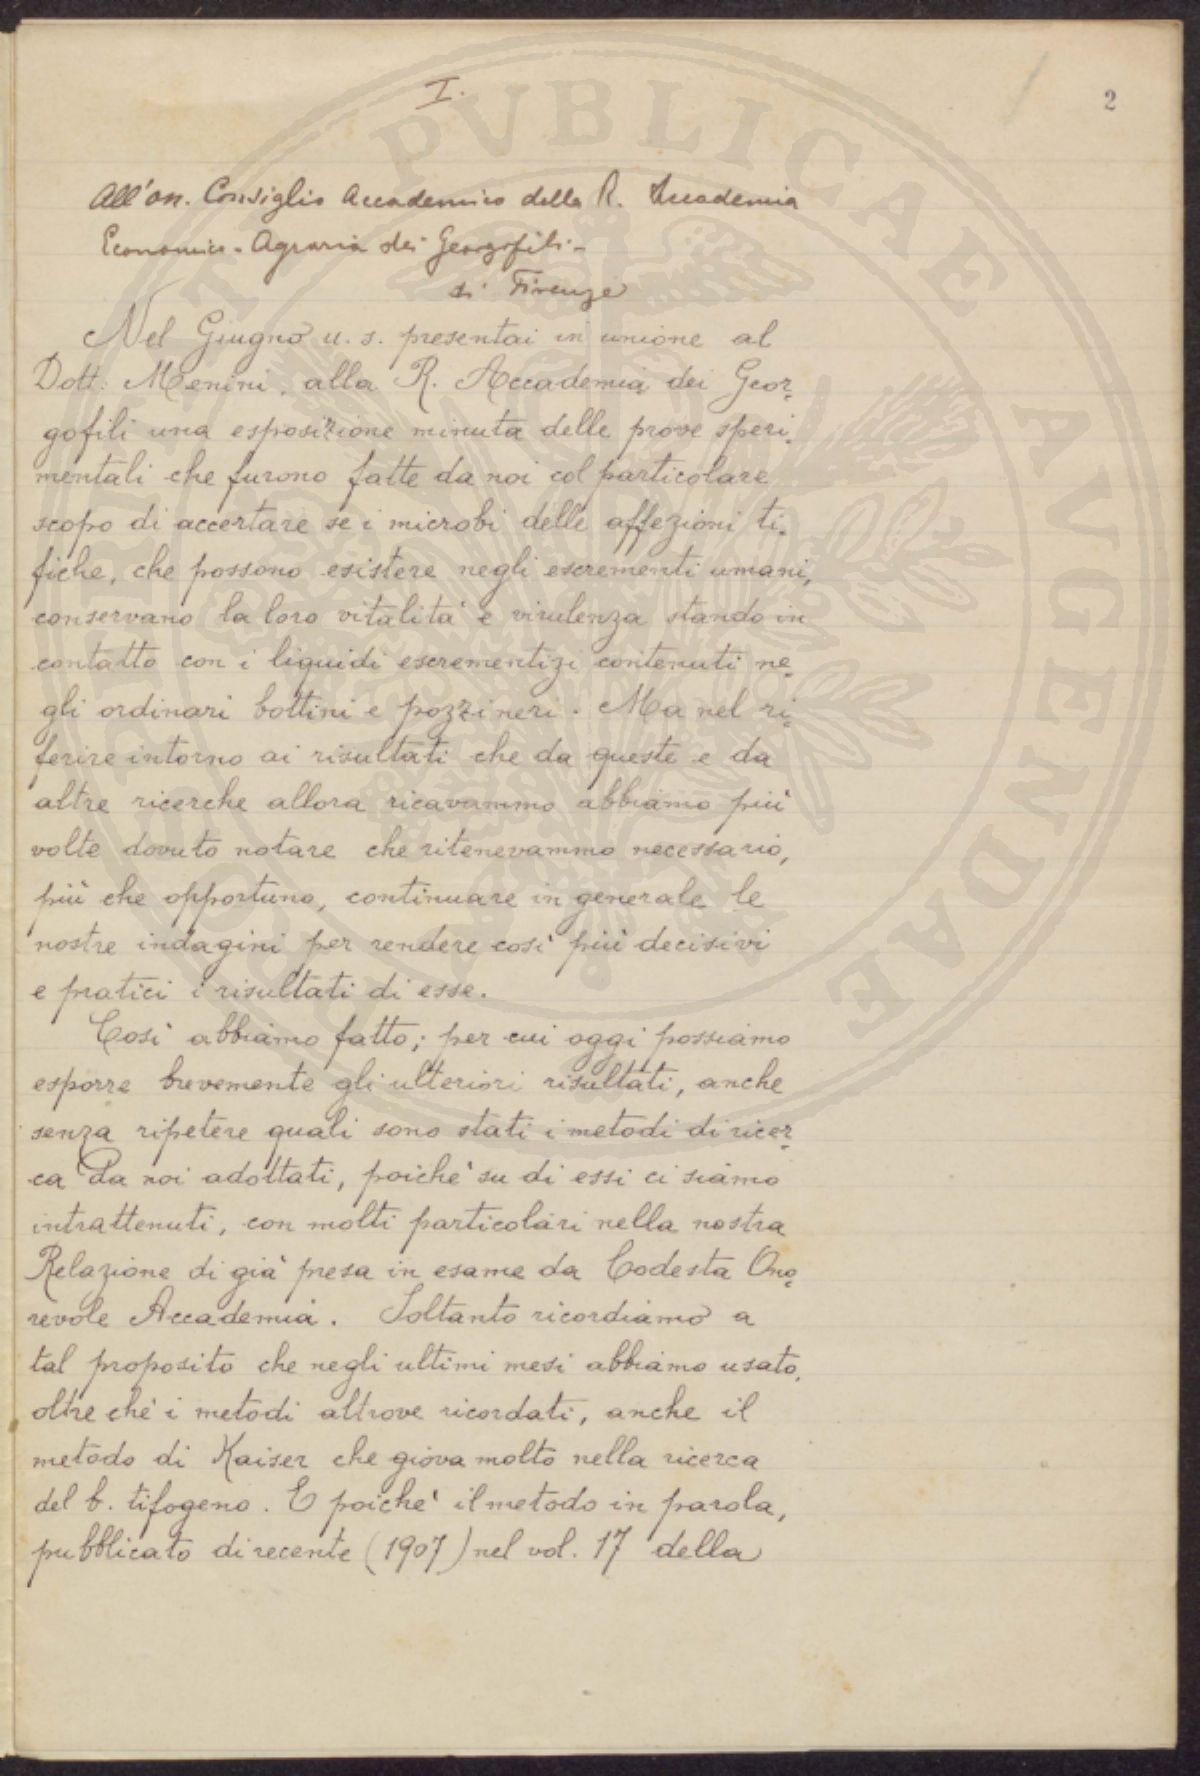 I.
2
All'on. Consiglio Accademico della R. Accademia
Economico-Agraria dei Georgofili-
di Firenze
Nel Giugno u. s. presentai in unione al
Dott: Menini, alla R. Accademia dei Geor-
gofili una esposizione minuta delle prove speri-
mentali che furono fatte da noi col particolare
scopo di accertare se i microbi delle affezioni ti-
fiche, che possono esistere negli escrementi umani,
conservano la loro vitalità e virulenza stando in
contatto con i liquidi escrementizi contenuti ne-
gli ordinari bottini e pozzi neri. Ma nel ri-
ferire intorno ai risultati che da queste e da
altre ricerche allora ricavammo abbiamo più
volte dovuto notare che ritenevammo necessario,
più che opportuno, continuare in generale le
nostre indagini per rendere così più decisivi
e pratici i risultati di esse.
Così abbiamo fatto; per cui oggi possiamo
esporre brevemente gli ulteriori risultati, anche
senza ripetere quali sono stati i metodi di ricer-
ca da noi adottati, poichè su di essi ci siamo
intrattenuti, con molti particolari nella nostra
Relazione di già presa in esame da Codesta Ono-
revole Accademia. Soltanto ricordiamo a
tal proposito che negli ultimi mesi abbiamo usato,
oltre chè i metodi altrove ricordati, anche il
metodo di Kaiser che giova molto nella ricerca
del b. tifogeno. E poichè il metodo in parola,
pubblicato di recente (1907) nel vol. 17 della
PUBLICAE AUGENDAE